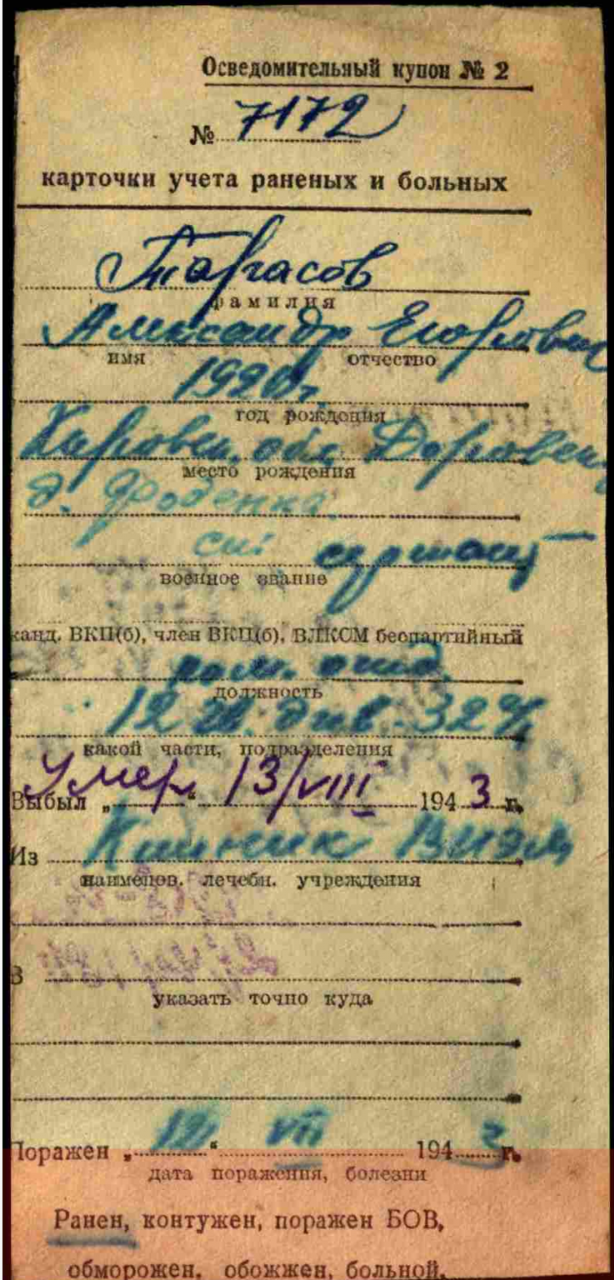 Осведомительный купон № 2
№ 7172
карточки учета раненых и больных
Тарасов
фамилия
Александр Егорович
имя отчество
год рождения
Кировск. обл.
место рождения
д.
сержант
военное звание
канд. ВКП(б), член ВКП(б), ВЛКСМ беспартийный
пом.
должность
12 див. 32
какой части, подразделения
Выбыл „ умер “ 13/VIII 1943 г.
Из Клиник
наименов. лечебн. учреждения
В
указать точно куда
Поражен „ 12 “ VII 1943 г.
дата поражения, болезни
Ранен, контужен, поражен БОВ,
обморожен, обожжен, больной.